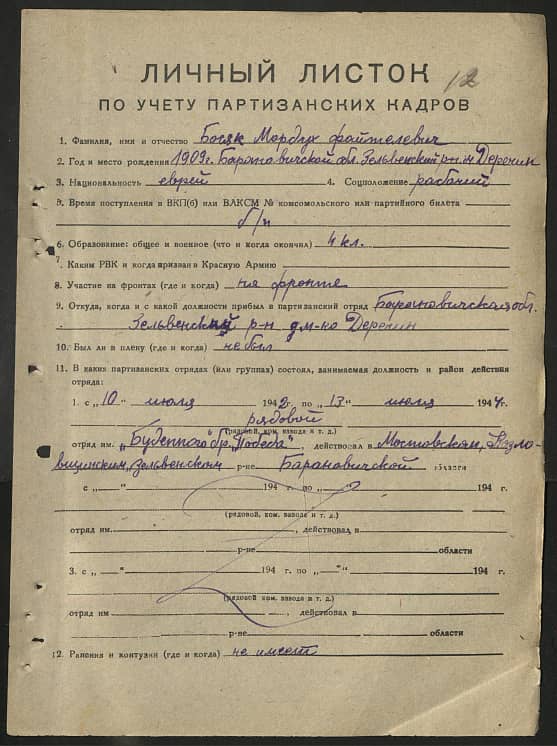 12
ЛИЧНЫЙ ЛИСТОК
ПО УЧЕТУ ПАРТИЗАНСКИХ КАДРОВ
1. Фамилия, имя и отчество Босяк Мордух Файтелевич
2. Год и место рождения 1909 г. Барановичской обл. Зельвенский р-н м. Деречин
3. Национальность еврей 4. Соцположение рабочий
5. Время поступления в ВКП(б) или ВЛКСМ № комсомольского или партийного билета
б/п
6. Образование: общее и военное (что и когда окончил) 4 кл.
7. Каким РВК и когда призван в Красную Армию
8. Участие на фронтах (где и когда) на фронте
9. Откуда, когда и с какой должности прибыл в партизанский отряд Барановичская обл.
Зельвенский р-н Деречин
10. Был ли в плену (где и когда) не был
11. В каких партизанских отрядах (или группах) состоял, занимаемая должность и район действия
отряда:
1. с „10" июля 1942 г. по „13" июля 1944 г.
рядовой
(рядовой, ком. взвода и т. д.)
отряд им. „Буденного" бр. „Победа" действовал в Мостовском, Козлов-
щинском, Зельвенском р-не Барановичской области
с „ " 194 г. по „ " 194 г.
(рядовой, ком. взвода и т. д.)
отряд им. , действовал в
р-не области
3. с „ " 194 г. по „ " 194 г.
(рядовой ком. взвода и т. д.)
отряд им , действовал в
р-не области
12. Ранения и контузии (где и когда) не имеет